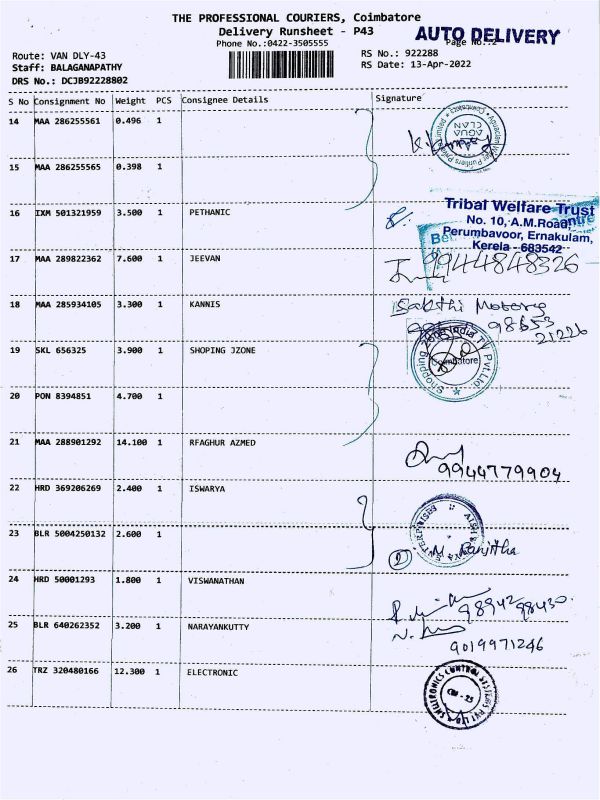 THE PROFESSIONAL COURIERS, Coimbatore
Delivery Runsheet - P43
AUTO DELIVERY
Phone No.:0422-3505555
Page No.:2
Route: VAN DLY-43
RS No.: 922288
Staff: BALAGANAPATHY
RS Date: 13-Apr-2022
DRS No.: DCJB92228802
S No Consignment No Weight PCS Consignee Details Signature
14 MAA 286255561 0.496 1
15 MAA 286255565 0.398 1
16 IXM 501321959 3.500 1 PETHANIC
Tribal Welfare Trust
No. 10, A.M.Road,
Perumbavoor, Ernakulam,
Kerela - 683542
17 MAA 289822362 7.600 1 JEEVAN
9944848326
18 MAA 285934105 3.300 1 KANNIS
Sakthi Motors
98653
21226
19 SKL 656325 3.900 1 SHOPING JZONE
Shopping Zone India TV Pvt.Ltd.
Coimbatore
20 PON 8394851 4.700 1
21 MAA 288901292 14.100 1 RFAGHUR AZMED
9944779904
22 HRD 369206269 2.400 1 ISWARYA
ENTERPRISES
23 BLR 5004250132 2.600 1
2 M. Ranjitha
24 HRD 50001293 1.800 1 VISWANATHAN
98942 98430
25 BLR 640262352 3.200 1 NARAYANKUTTY
9019971246
26 TRZ 320480166 12.300 1 ELECTRONIC
CONTROL SYSTEMS PVT LTD
CBE - 25